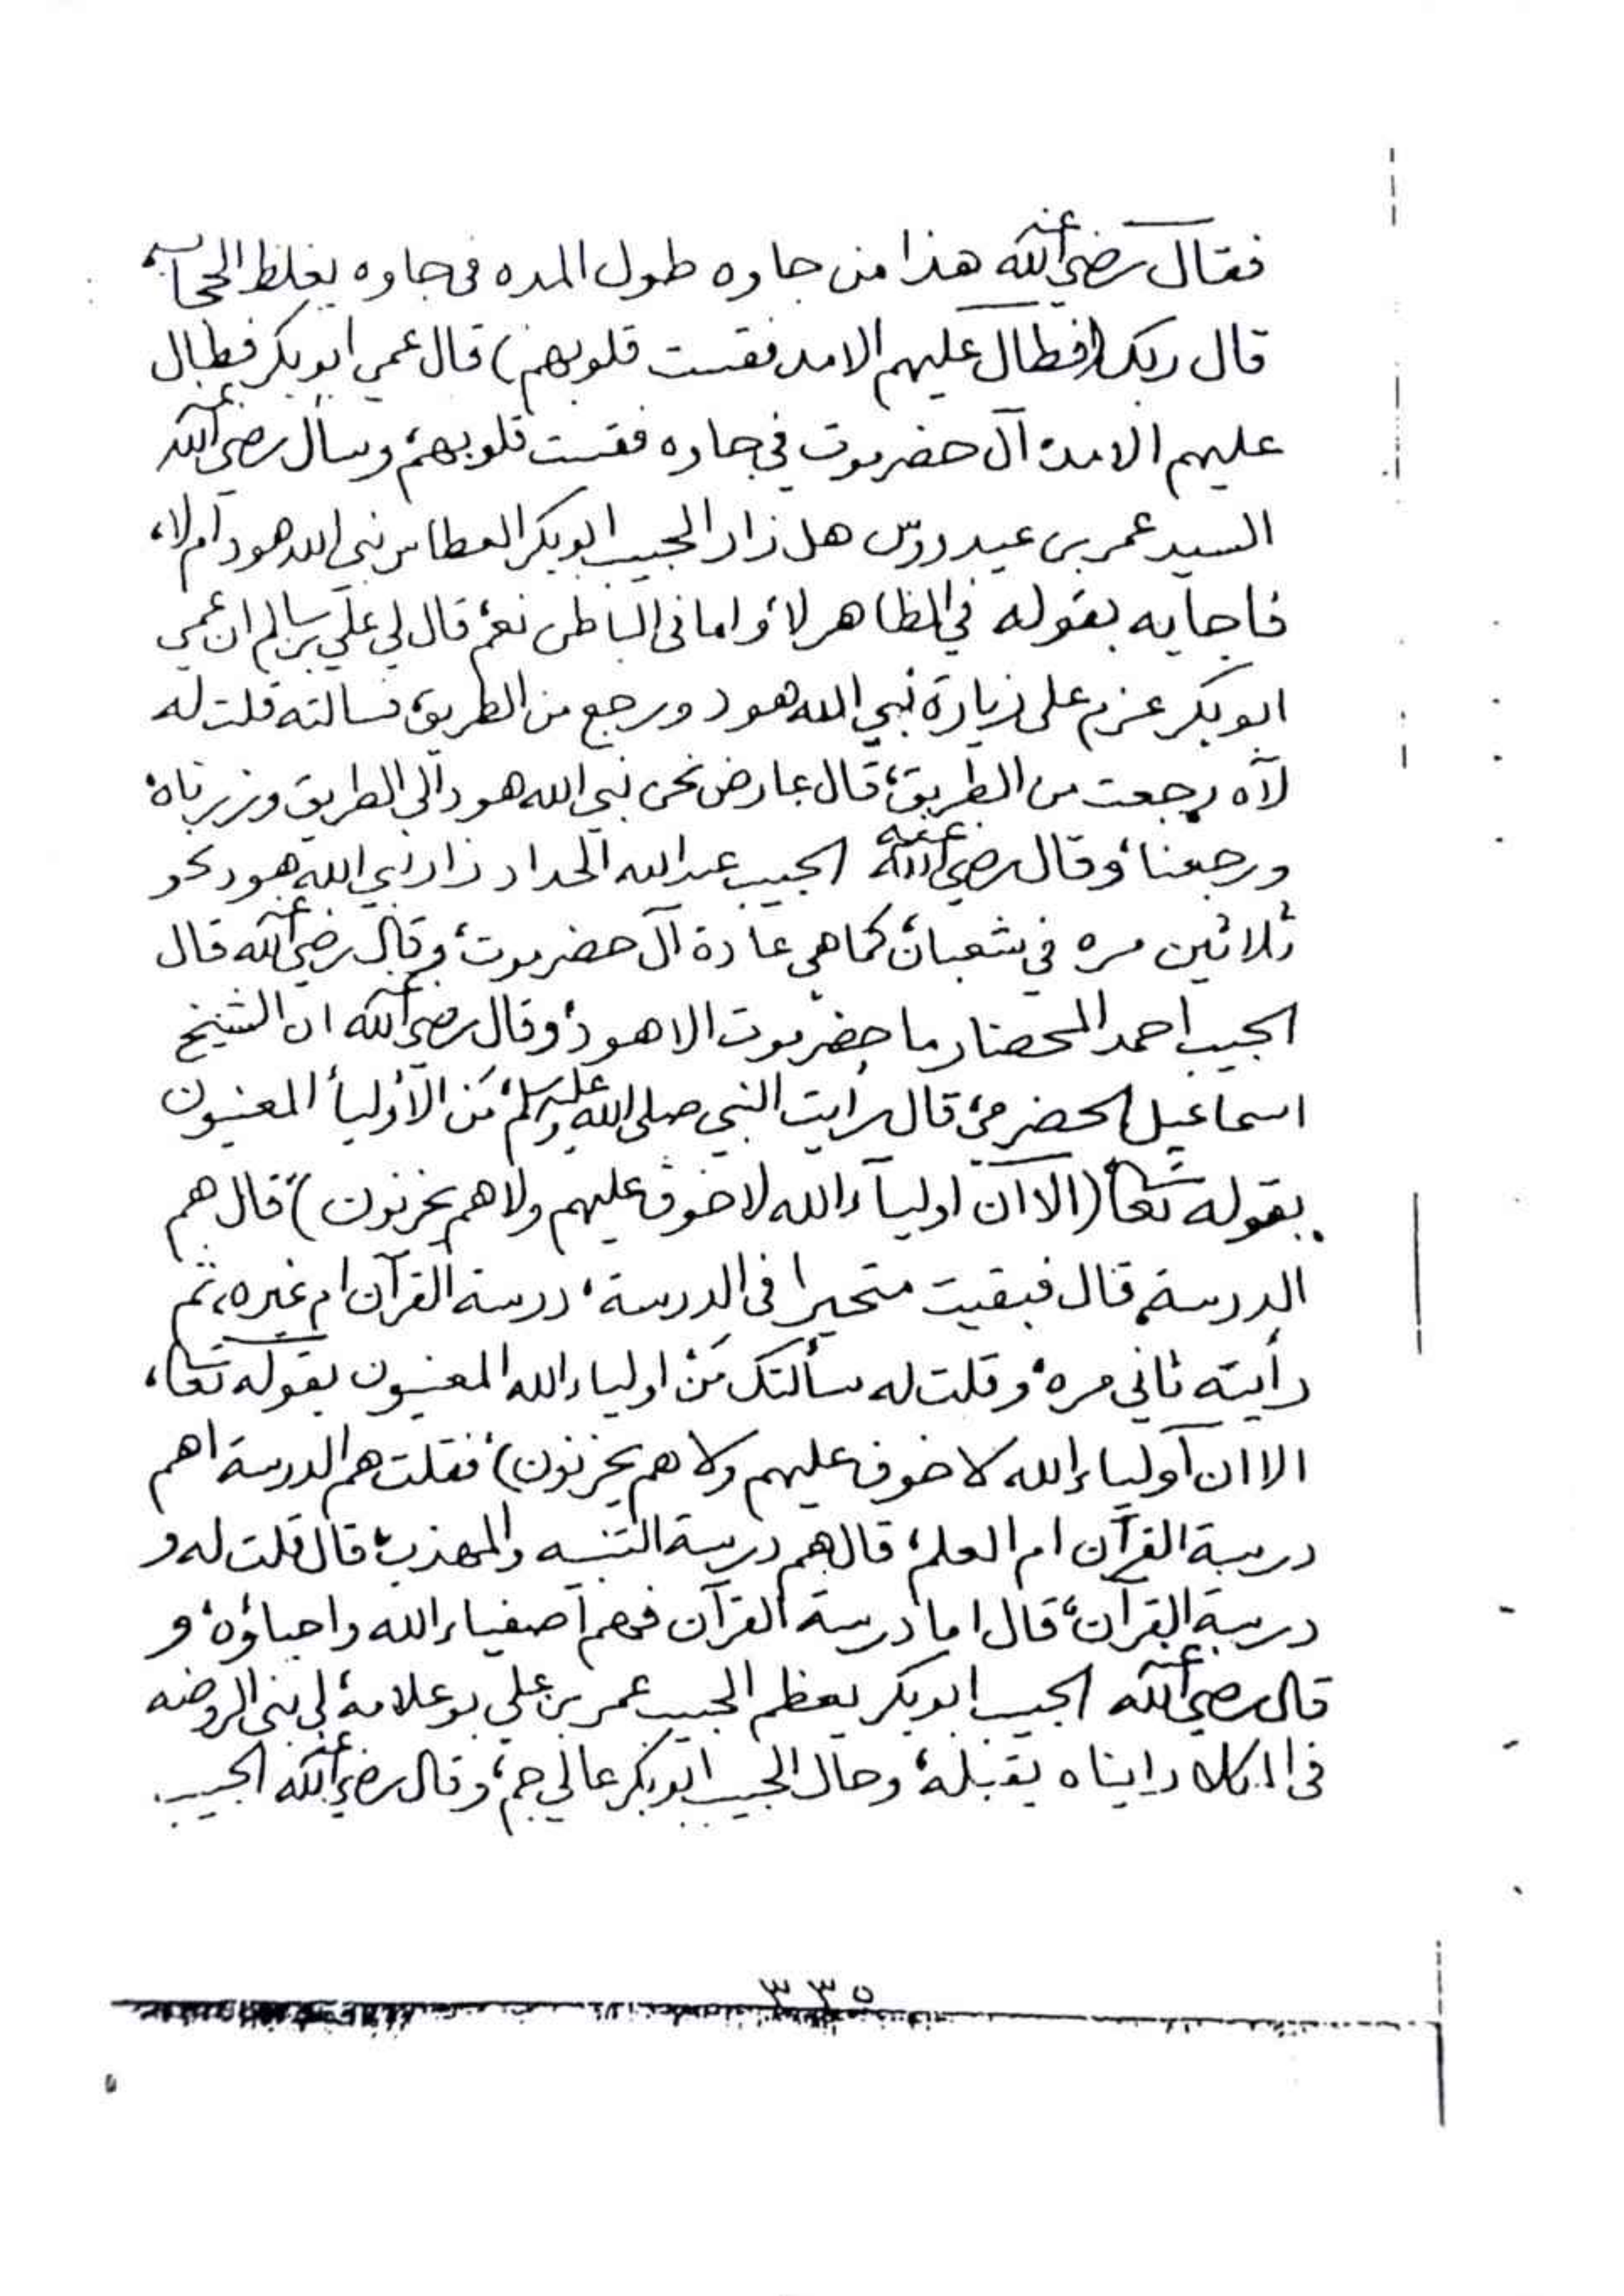 فقال رضي الله عنه هذا من جاوه طول المده في جاوه يغلظ الحجاب،
قال ربك (فطال عليهم الامد فقست قلوبهم) قال عمي ابو بكر فطال
عليهم الامد، آل حضرموت في جاوه فقست قلوبهم، وسأل رضي الله عنه
السيد عمر بن عيدروس هل زار الحبيب ابو بكر العطاس نبي الله هود أم لا،
فاجابه بقوله في الظاهر لا، واما في الباطن نعم، قال لي علي بن سالم ان عمي
ابو بكر عزم على زيارة نبي الله هود ورجع من الطريق، فسالته قلت له
لآه رجعت من الطريق، قال عارض نحن نبي الله هود الى الطريق وزرناه،
ورجعنا، وقال رضي الله عنه الحبيب عبد الله الحداد زار نبي الله هود نحو
ثلاثين مره في شعبان، كما هي عادة آل حضرموت، وقال رضي الله عنه قال
الحبيب احمد المحضار ما حضرموت الا هود، وقال رضي الله عنه ان الشيخ
اسماعيل الحضرمي، قال رايت النبي صلى الله عليه وسلم، مَن الأوليأ المعنيون
بقوله تعا (الا ان اولياء الله لا خوف عليهم ولا هم يحزنون)، قال هم
الدرسة، قال فبقيت متحيرا في الدرسة، درسة القرآن ام غيره، ثم
رأيته ثاني مره، وقلت له سألتك مَن اولياء الله المعنيون بقوله تعا،
الا ان أولياء الله لا خوف عليهم ولا هم يحزنون)، فقلت هم الدرسة اهم
درسة القرآن ام العلم، قال هم درسة التنبيه والمهذب، قال قلت له و
درسة القرآن، قال اما درسة القرآن فهم أصفياء الله واحباؤه، و
قال رضي الله عنه الحبيب ابو بكر يعظم الحبيب عمر بن علي بو علامة، لي بنى الروضه
في المكلا رايناه يقبله، وحال الحبيب ابو بكر عالي جم، وقال رضي الله عنه الحبيب
٣٣٥